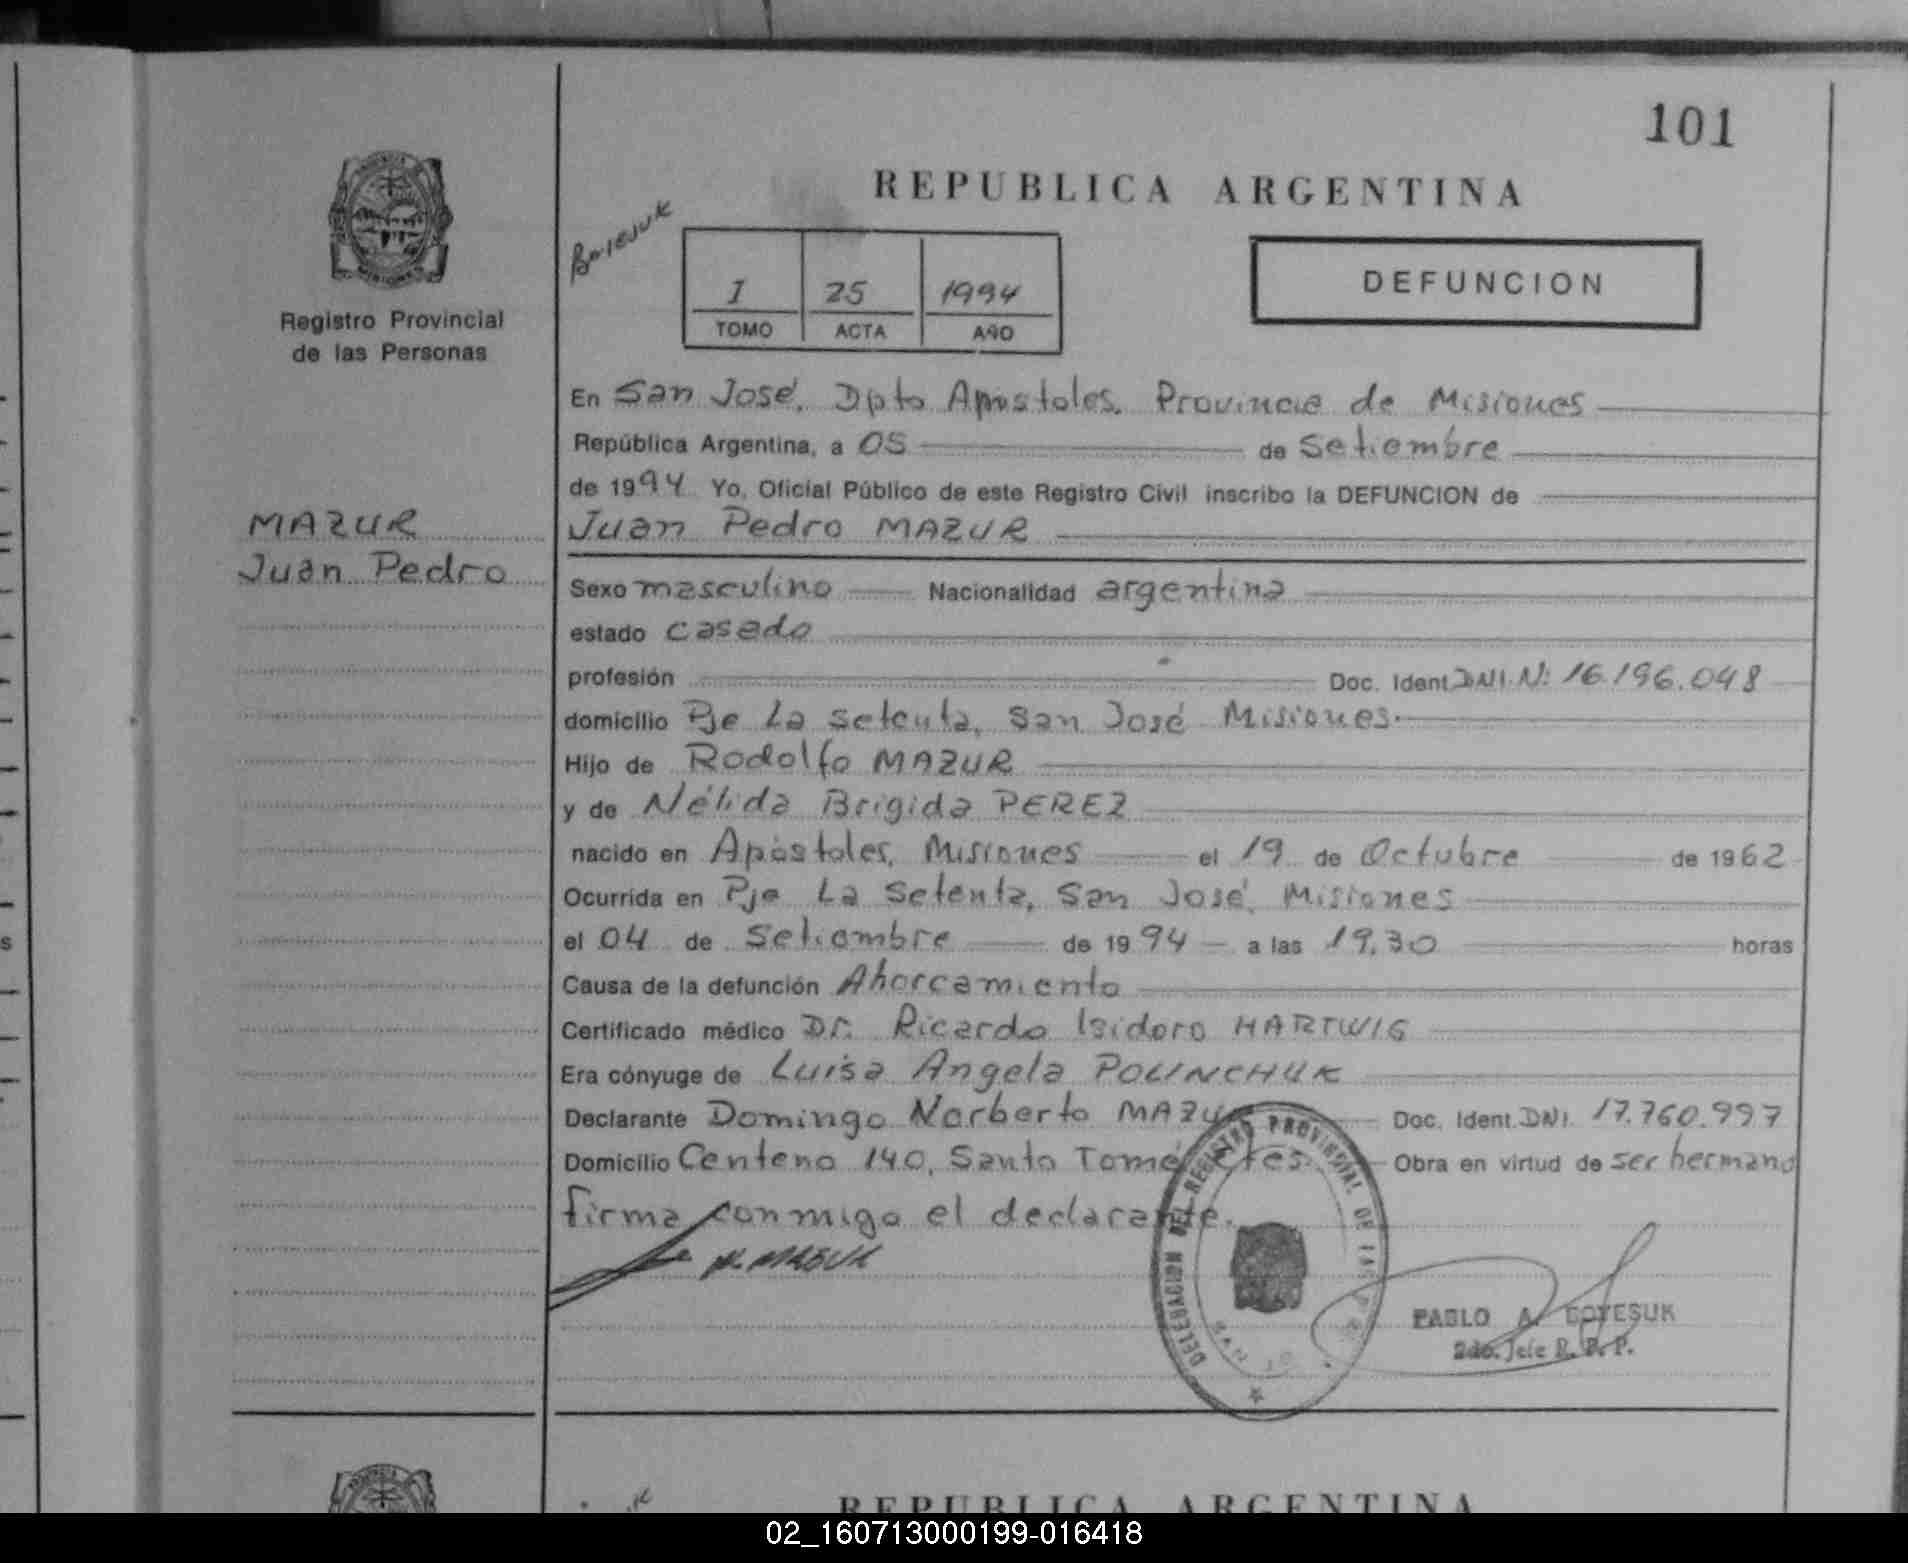 101
REPUBLICA ARGENTINA
Registro Provincial
de las Personas
I 25 1994
TOMO ACTA AÑO
DEFUNCION
MAZUR
Juan Pedro
En San José, Dpto Apóstoles, Provincia de Misiones
República Argentina, a 05 de Setiembre
de 1994 Yo, Oficial Público de este Registro Civil inscribo la DEFUNCION de
Juan Pedro MAZUR
Sexo masculino Nacionalidad argentina
estado casado
profesión Doc. Ident DNI. N: 16.196.048
domicilio Pje La Setenta, San José Misiones.
Hijo de Rodolfo MAZUR
y de Nélida Brigida PEREZ
nacido en Apóstoles, Misiones el 19 de Octubre de 1962
Ocurrida en Pje La Setenta, San José, Misiones
el 04 de Setiembre de 1994 a las 19,30 horas
Causa de la defunción Ahorcamiento
Certificado médico Dr. Ricardo Isidoro HARTWIG
Era cónyuge de Luisa Angela POLINCHUK
Declarante Domingo Norberto MAZUR Doc. Ident. DNI. 17.760.997
Domicilio Centeno 140, Santo Tomé Ctes. Obra en virtud de ser hermano
firma conmigo el declarante.
N. MAZUR
DELEGACION DEL REGISTRO PROVINCIAL DE LAS
PABLO A. BOYESUK
2do. Jefe R. P. P.
REPUBLICA ARGENTINA
02_160713000199-016418